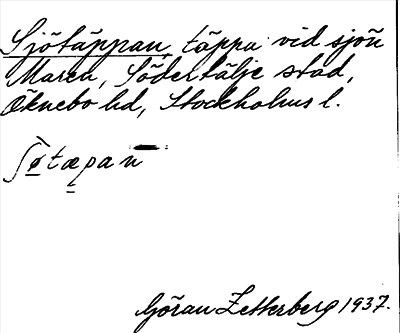 Sjötäppan, täppa vid sjön
Maren, Södertälje stad,
Öknebo hd, Stockholms l.
ʃø̀tæpan
Göran Zetterberg 1937.